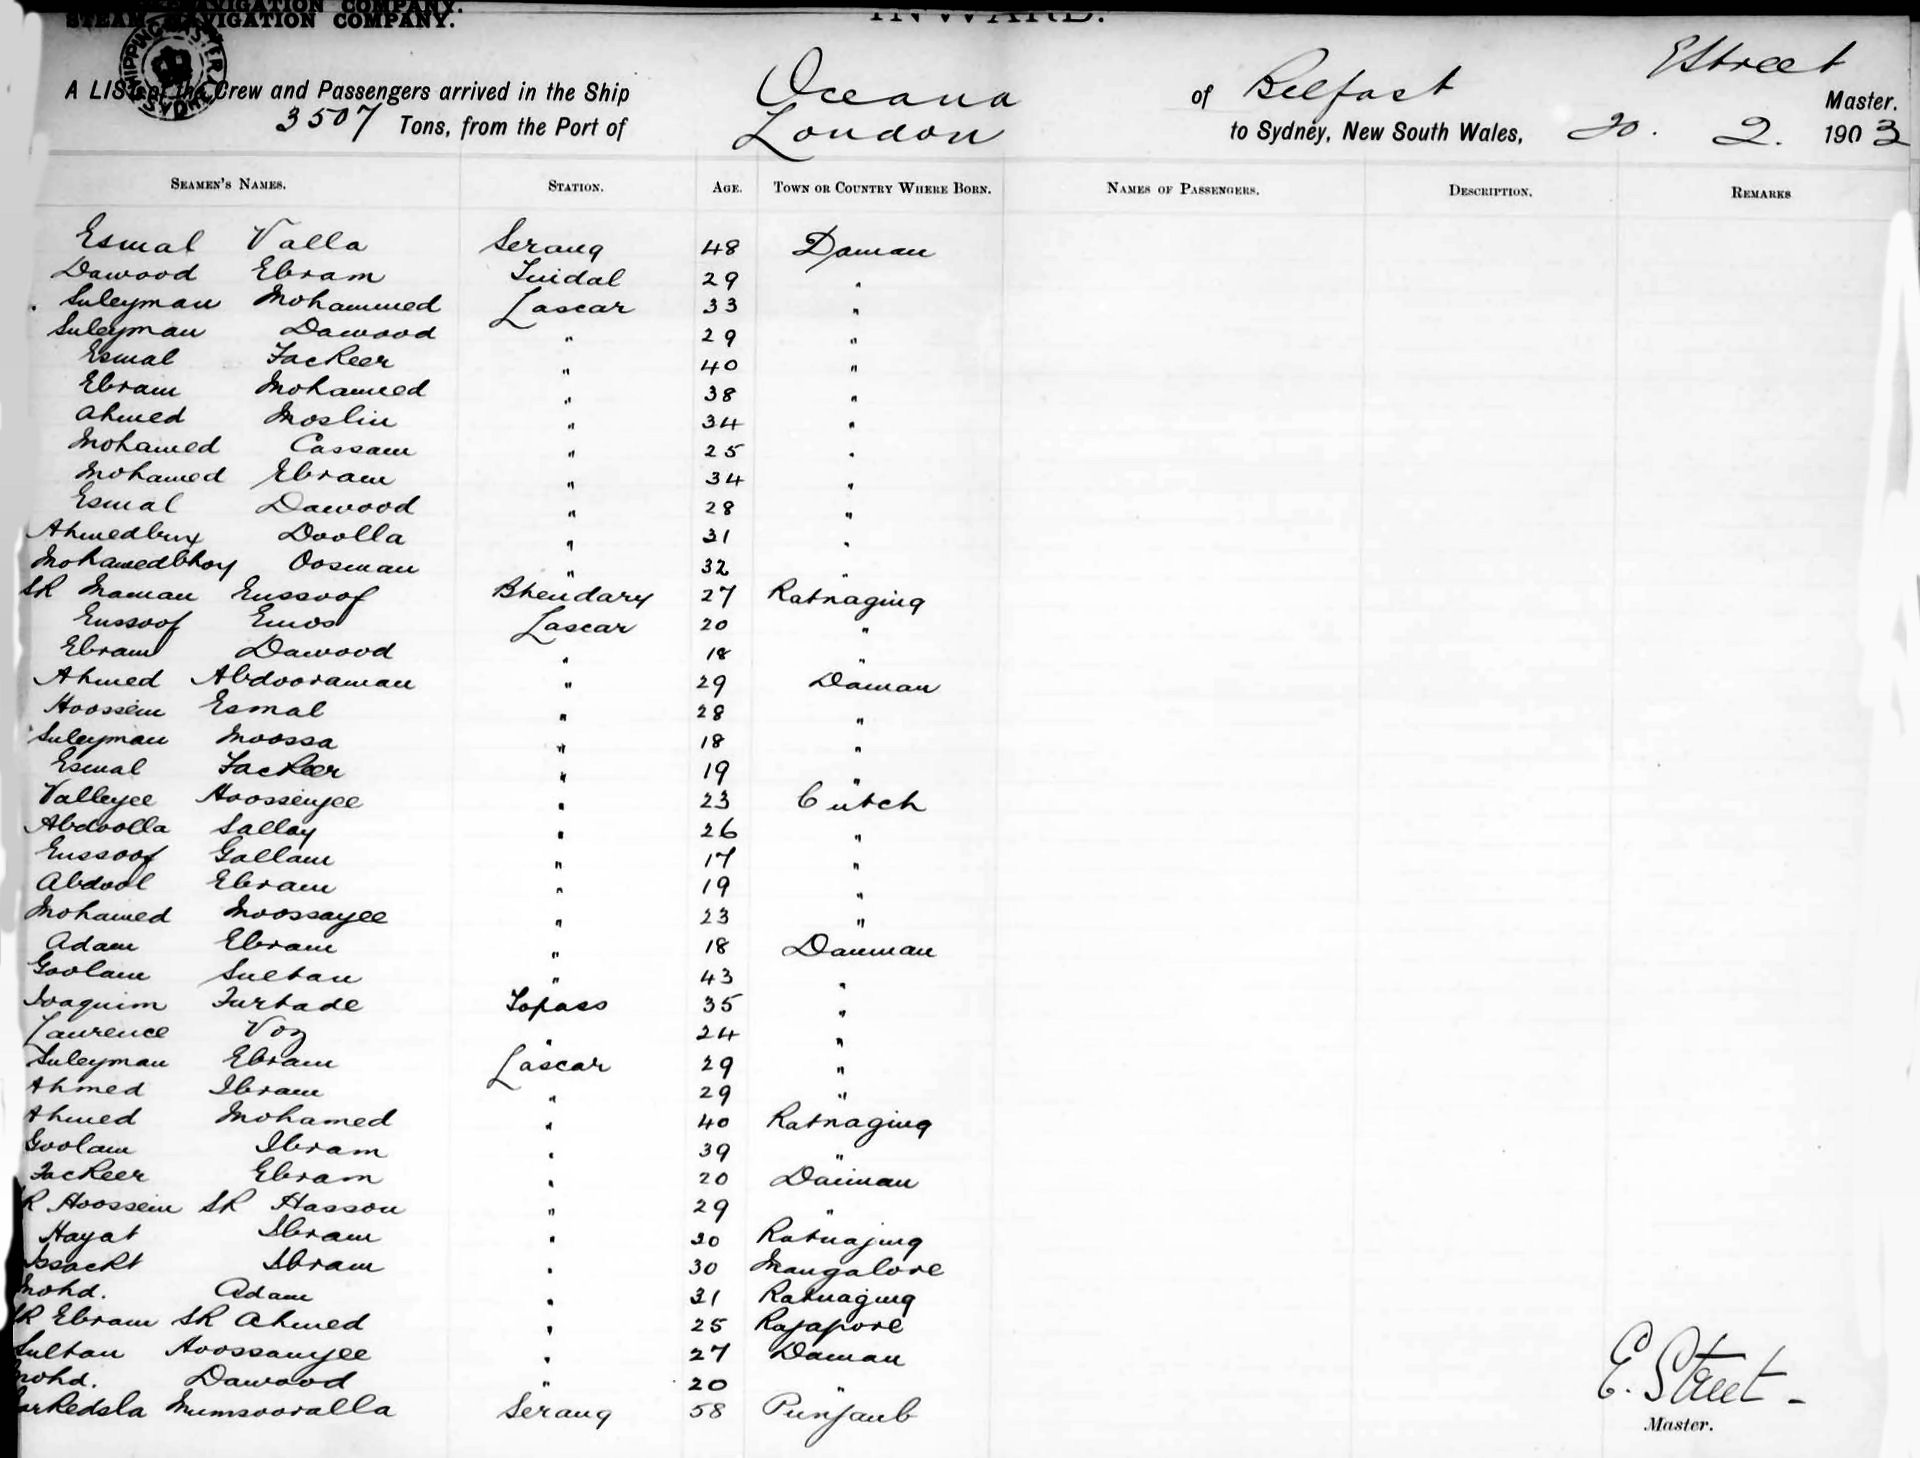 STEAM NAVIGATION COMPANY.
INWARD.
A LIST of the Crew and Passengers arrived in the Ship Oceana of Belfast E Street Master.
3507 Tons, from the Port of London to Sydney, New South Wales, 20. 2. 1903
SEAMEN'S NAMES. STATION. AGE. TOWN OR COUNTRY WHERE BORN. NAMES OF PASSENGERS. DESCRIPTION. REMARKS
Esmal Valla Serang 48 Daman
Dawood Ebram Tindal 29 "
Suleyman Mohammed Lascar 33 "
Suleyman Dawood " 29 "
Esmal Fackeer " 40 "
Ebram Mohamed " 38 "
Ahmed Moslin " 34 "
Mohamed Cassam " 25 "
Mohamed Ebram " 34 "
Esmal Dawood " 28 "
Ahmedbux Doolla " 31 "
Mohamedbhoy Oosman " 32 "
SK Maman Eussoof Bhendary 27 Ratnaging
Eussoof Emos Lascar 20 "
Ebram Dawood " 18 "
Ahmed Abdooraman " 29 Daman
Hoossein Esmal " 28 "
Suleyman Moossa " 18 "
Esmal Fackeer " 19 "
Valleyee Hoossenyee " 23 Cutch
Abdoolla Sallay " 26 "
Eussoof Gallam " 17 "
Abdool Ebram " 19 "
Mohamed Moossayee " 23 "
Adam Ebram " 18 Damman
Goolam Sultan " 43 "
Joaquim Furtade Topass 35 "
Laurence Voz " 24 "
Suleyman Ebram Lascar 29 "
Ahmed Ibram " 29 "
Ahmed Mohamed " 40 Ratnaging
Goolam Ibram " 39 "
Fackeer Ebram " 20 Damman
SK Hoossein SK Hasson " 29 "
Hayat Ibram " 30 Ratnaging
Issackt Ibram " 30 Mangalore
Mohd. Adam " 31 Ratnaging
SK Ebram SK Ahmed " 25 Rajapore
Sultan Hoossanyee " 27 Daman
Mohd. Dawood " 20 "
Mumsooralla Serang 58 Punjaub
E. Street
Master.